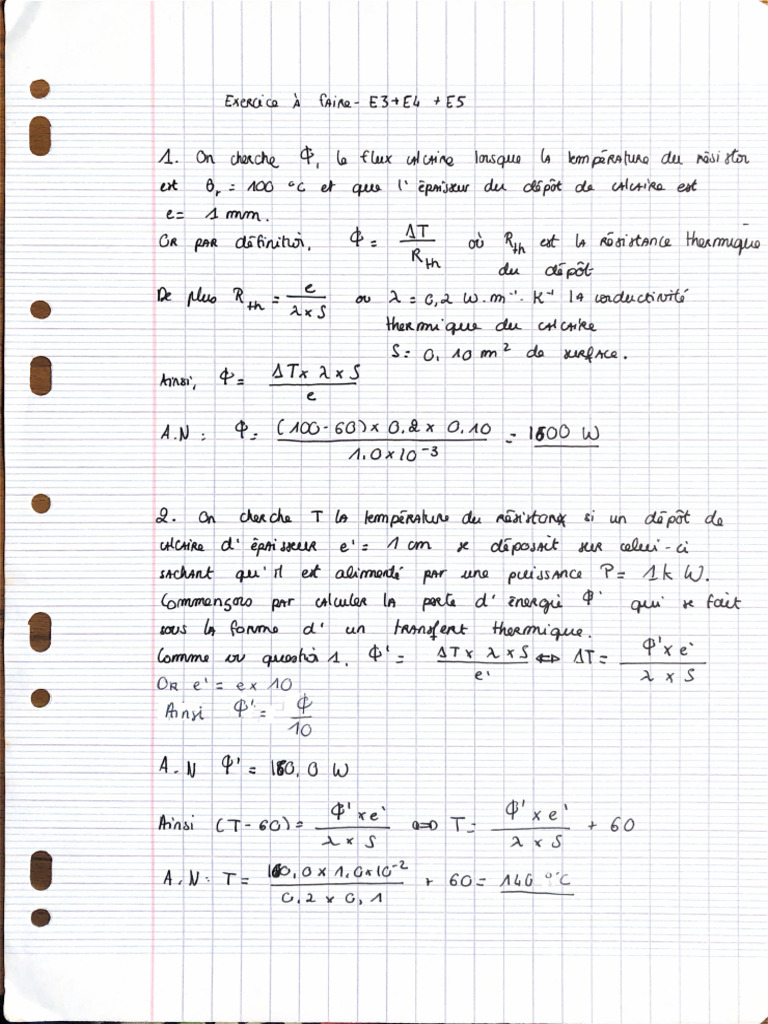 Exercice à faire - E3+E4 +E5
1. On cherche Φ, le flux calcaire lorsque la température du résistor
est θr = 100 °C et que l'épaisseur du dépôt de calcaire est
e = 1 mm.
Or par définition, Φ = ΔT / Rth où Rth est la résistance thermique
du dépôt
De plus Rth = e / λ×S ou λ = 0,2 W.m⁻¹.K⁻¹ la conductivité
thermique du calcaire
S = 0,10 m² de surface.
Ainsi, Φ = ΔT × λ × S / e
A.N : Φ = (100-60) × 0,2 × 0,10 / 1,0×10⁻³ = 1600 W
2. On cherche T la température du résistor si un dépôt de
calcaire d'épaisseur e' = 1 cm se déposait sur celui-ci
sachant qu'il est alimenté par une puissance P = 1 kW.
Commençons par calculer la perte d'énergie Φ' qui se fait
sous la forme d'un transfert thermique.
Comme vu question 1. Φ' = ΔT × λ × S / e' ⟺ ΔT = Φ' × e' / λ × S
Or e' = e × 10
Ainsi Φ' = Φ / 10
A.N Φ' = 160,0 W
Ainsi (T-60) = Φ' × e' / λ × S ⟺ T = Φ' × e' / λ × S + 60
A.N: T = 160,0 × 1,0×10⁻² / 0,2 × 0,1 + 60 = 140 °C